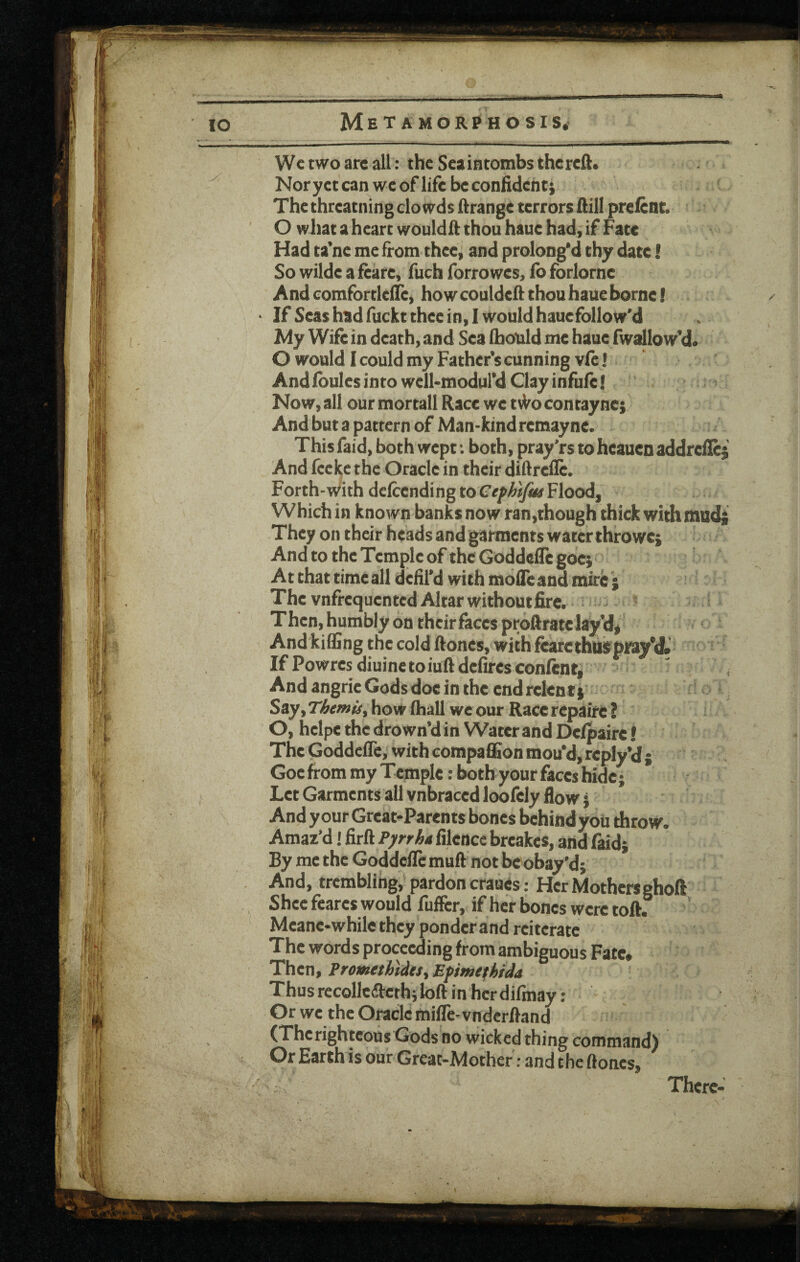 10 METAMORPHOSIS.
We two are all: the Sea intombs the reſt.
Nor yet can we of life be confident;
The threatning clowds ſtrange terrors ſtill preſent.
O what a heart wouldſt thou haue had, if Fate
Had ta'ne me from thee, and prolong'd thy date!
So wilde a feare, ſuch ſorrowes, ſo forlorne
And comfortleſſe, how couldeſt thou haue borne!
If Seas had ſuckt thee in, I would haue follow'd
My Wife in death, and Sea ſhould me haue ſwallow'd.
O would I could my Father's cunning vſe!
And ſoules into well-modul'd Clay infuſe!
Now, all our mortall Race we two contayne;
And but a pattern of Man-kind remayne.
This ſaid, both wept: both, pray'rs to heauen addreſſe;
And ſeeke the Oracle in their diſtreſſe.
Forth-with deſcending to Cephiſus Flood,
Which in known banks now ran, though thick with mud;
They on their heads and garments water throwe;
And to the Temple of the Goddeſſe goe;
At that time all defil'd with moſſe and mire;
The vnfrequented Altar without fire.
Then, humbly on their faces proſtrate lay'd,
And kiſſing the cold ſtones, with feare thus pray'd.
If Powres diuine to iuſt deſires conſent,
And angrie Gods doe in the end relent;
Say, Themis, how ſhall we our Race repaire?
O, helpe the drown'd in Water and Deſpaire!
The Goddeſſe, with compaſſion mou'd, reply'd;
Goe from my Temple: both your faces hide;
Let Garments all vnbraced looſely flow;
And your Great-Parents bones behind you throw.
Amaz'd! firſt Pyrrha ſilence breakes, and ſaid;
By me the Goddeſſe muſt not be obay'd;
And, trembling, pardon craues: Her Mothers ghoſt
Shee feares would ſuffer, if her bones were toſt.
Meane-while they ponder and reiterate
The words proceeding from ambiguous Fate.
Then, Promethides, Epimethida
Thus recollecteth; loſt in her diſmay:
Or we the Oracle miſſe-vnderſtand
(The righteous Gods no wicked thing command)
Or Earth is our Great-Mother: and the ſtones,
There-